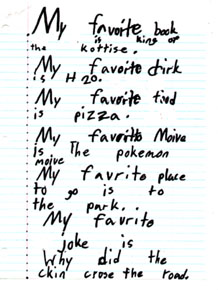 My favorite book
is king of
the kottise.
My favoite dirk
is H20.
My favoite fiod
is pizza.
My favoritto Moive
is The pokemon
moive
My favrite place
to go is to
the park..
My favrito
joke is
Why did the
ckin crose the road.